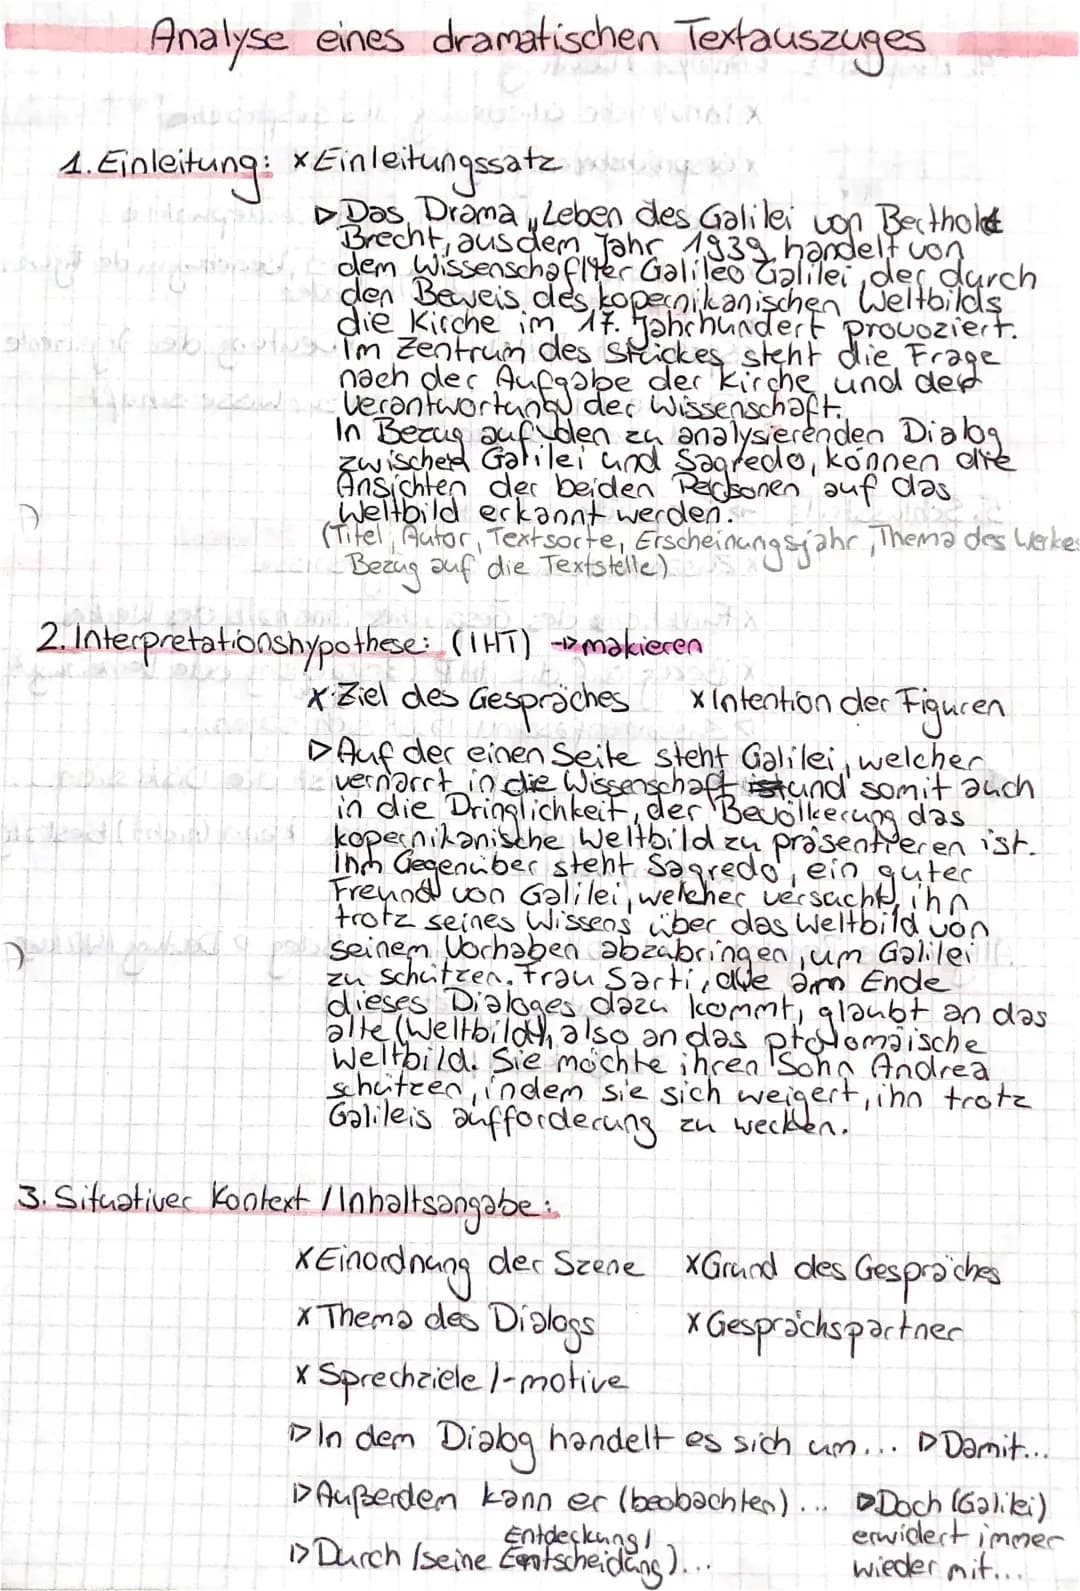 Analyse eines dramatischen Textauszuges
1. Einleitung: x Einleitungssatz
▷ Das Drama „Leben des Galilei von Berthold
Brecht, aus dem Jahr 1939 handelt von
dem Wissenschaftler Galileo Galilei, der durch
den Beweis des kopernikanischen Weltbilds
die Kirche im 17. Jahrhundert provoziert.
Im Zentrum des Stückes steht die Frage
nach der Aufgabe der Kirche und der
Verantwortung der Wissenschaft.
In Bezug auf den zu analysierenden Dialog
zwischen Galilei und Sagredo, können die
Ansichten der beiden Personen auf das
Weltbild erkannt werden.
(Titel, Autor, Textsorte, Erscheinungsjahr, Thema des Werkes
Bezug auf die Textstelle)
2. Interpretationshypothese: (IHT) → makieren
x Ziel des Gespräches x Intention der Figuren
▷ Auf der einen Seite steht Galilei, welcher
vernarrt in die Wissenschaft ist und somit auch
in die Dringlichkeit, der Bevölkerung das
kopernikanische Weltbild zu präsentieren ist.
Ihm Gegenüber steht Sagredo, ein guter
Freund von Galilei, welcher versucht, ihn
trotz seines Wissens über das Weltbild von
seinem Vorhaben abzubringen, um Galilei
zu schützen. Frau Sarti, die am Ende
dieses Dialoges dazu kommt, glaubt an das
alte Weltbild, also an das ptolomäische
Weltbild. Sie möchte ihren Sohn Andrea
schützen, indem sie sich weigert, ihn trotz
Galileis aufforderung zu wecken.
3. Situativer Kontext / Inhaltsangabe:
x Einordnung der Szene x Grund des Gespräches
x Thema des Dialogs x Gesprächspartner
x Sprechziele /-motive
▷ In dem Dialog handelt es sich um... ▷ Damit...
▷ Außerdem kann er (beobachten)... ▷ Doch (Galilei)
erwidert immer
wieder mit...
Entdeckung/
▷ Durch (seine Entscheidung)...